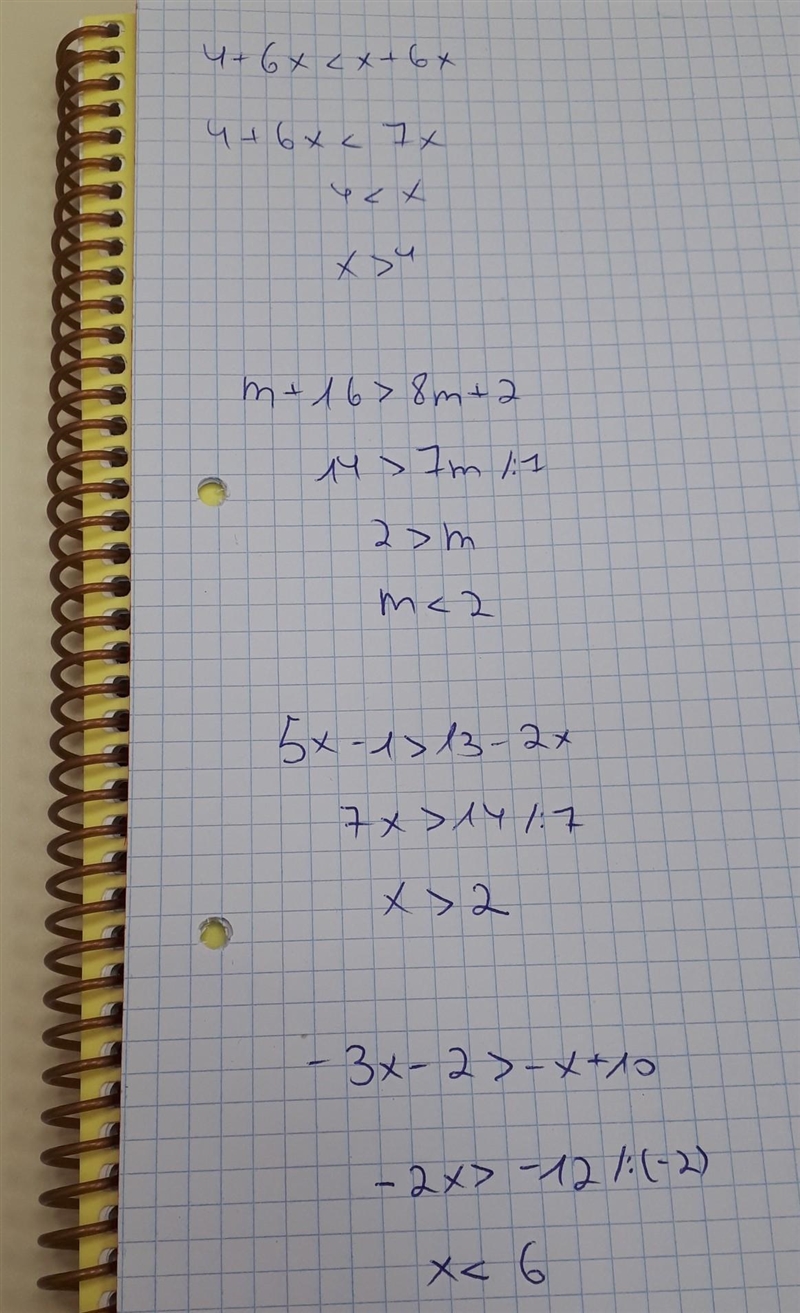 4+6x<x+6x
4+6x<7x
4<x
x>4
m+16>8m+2
14>7m /:7
2>m
m<2
5x-1>13-2x
7x>14 /:7
x>2
-3x-2>-x+10
-2x>-12 /:(-2)
x<6